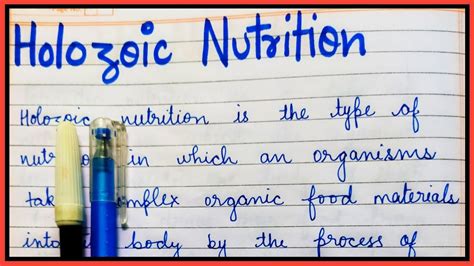 Holozoic Nutrition
Holozoic nutrition is the type of
in which an organisms
organic food materials
into body by the process of